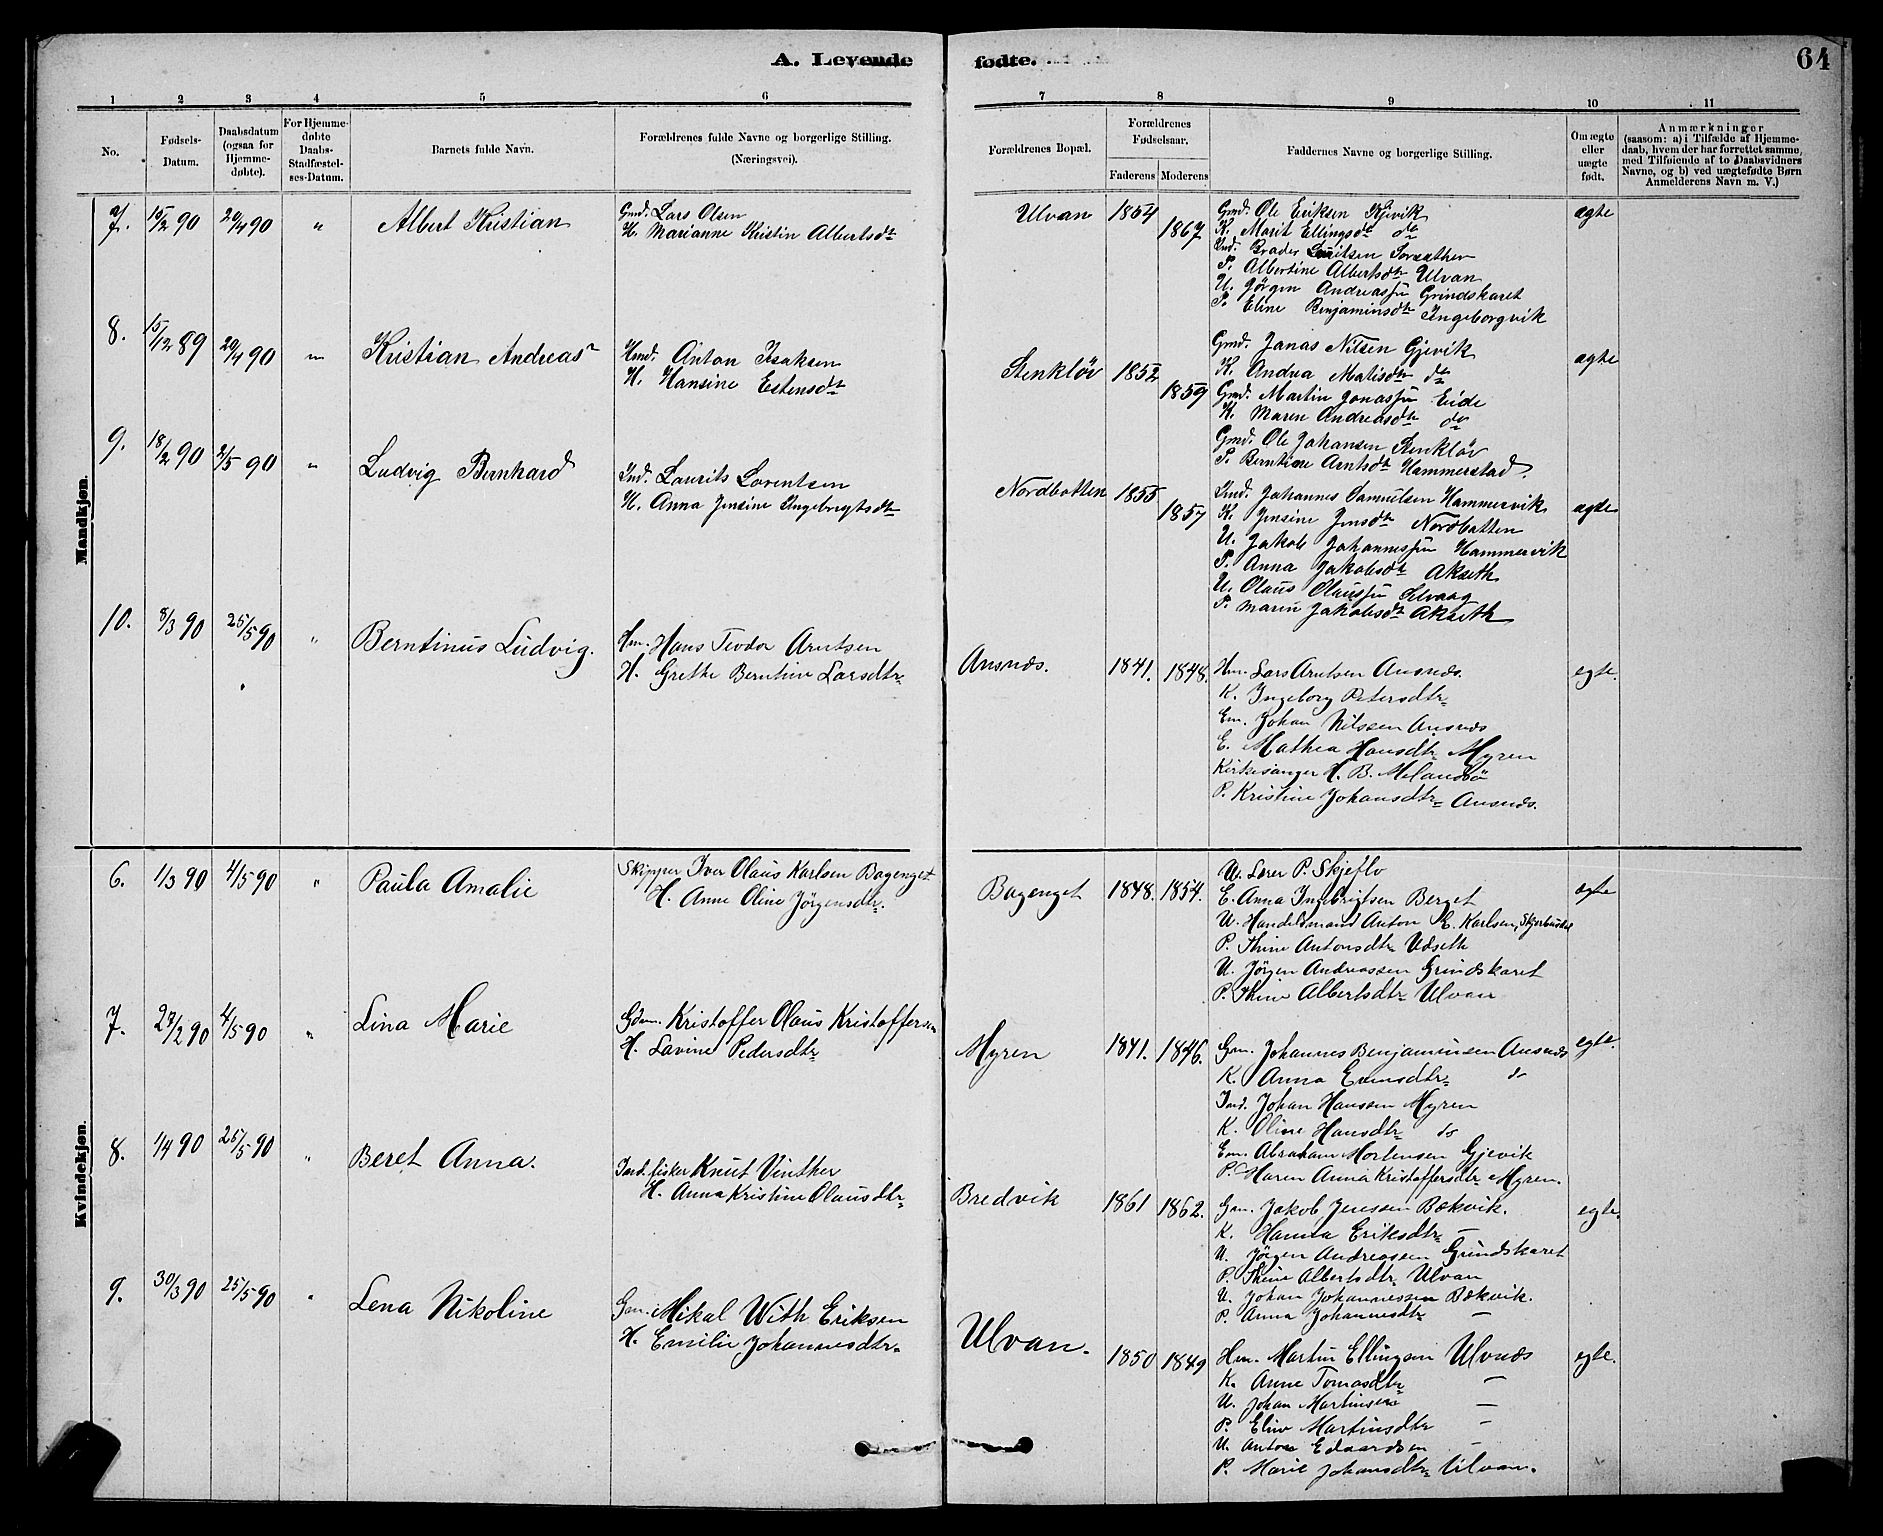 A. Levende fødte.
64
1 2 3 4 5 6 7 8 9 10 11
No.
Fødsels-Datum.
Daabsdatum (ogsaa for Hjemme-døbte).
For Hjemme-døbte Daabs-Stadfæstel-ses-Datum.
Barnets fulde Navn.
Forældrenes fulde Navne og borgerlige Stilling. (Næringsvei).
Forældrenes Bopæl.
Forældrenes Fødselsaar.
Faderens Moderens
Faddernes Navne og borgerlige Stilling.
Om ægte eller uægte født.
Anmærkninger
(saasom: a) i Tilfælde af Hjemme-
daab, hvem der har forrettet samme,
med Tilføiende af to Daabsvidners
Navne, og b) ved uægtefødte Børn
Anmelderens Navn m. V.)
Mandkjøn.
7. 15/2 90 20/4 90 " Albert Kristian
Gmd. Lars Olsen
H. Marianne Kristin Albertsdtr
Ulvan 1854 1867
Gmd. Ole Eriksen Gjevik
K. Marit Ellingsdtr do
Ind. Lauritsen
P. Albertine Albertsdtr Ulvan
U. Jørgen Andreassen Grindskaret
P. Eline Benjaminsdtr Ingeborgvik
ægte
8. 15/12 89 20/4 90 " Kristian Andreas
Hmd. Anton Isaksen
H. Hansine Estensdtr
Stenkløv 1852 1859
Gmd. Jonas Nilsen Gjevik
K. Andrea Matisdtr do
Gmd. Martin Jonassen Eide
K. Maren Andreasdtr do
Gmd. Ole Johansen Stenkløv
P. Berntine Arntsdtr Hammerstad.
ægte
9. 18/2 90 2/5 90 " Ludvig Bernhard
Ind. Laurits Lorentsen
H. Anna Jensine Ingebrigtsdtr
Nordbotten 1855 1857
Ind. Johannes Samuelsen Hammervik
K. Jensine Jensdtr Nordbotten
U. Jakob Johannessen Hammervik
P. Anna Jakobsdtr Akseth
U. Olaus Olaussen Selvaag
P. Maren Jakobsdtr Akseth
ægte
10. 8/3 90 25/5 90 " Berntinus Ludvig.
Hm. Hans Teodor Arntsen
H. Grethe Berntine Larsdtr.
Ansnæs. 1841. 1848.
Hm. Lars Arntsen Ansnæs.
K. Ingeborg Petersdtr
Em. Johan Nilssen Ansnæs
E. Mathea Hansdtr Myren
Kirkesanger H. B. Melandsø
P. Kristine Johansdtr Ansnæs.
egte.
Kvindekjøn.
6. 1/3 90 4/5 90 " Paula Amalie
Skipper Iver Olaus Karlsen Bagenget
H. Anne Oline Jörgensdtr.
Bagenget 1848. 1854.
U. Lærer P. Skjeflo
E. Anna Ingebrigtsen Berget
U. Handelsmand Anton E. Karlsen,
P. Thine Antonsdtr Udseth
U. Jörgen Andreassen Grindskaret
P. Thine Albertsdtr Ulvan
egte
7. 27/2 90 4/5 90 " Lina Marie
Gdm. Kristoffer Olaus Kristoffersen
H. Lavine Pedersdtr
Myren 1841. 1846.
Gm. Johannes Benjaminsen Ansnæs
K. Anna Evensdtr do
Ind. Johan Hansen Myren
K. Oline Hansdtr do
Em. Abraham Mortensen Gjevik
P. Maren Anna Kristoffersdtr Myren.
egte.
8. 1/4 90 25/5 90 " Beret Anna.
Ind. fisker Knut Vinther
H. Anna Kristine Olausdtr
Bredvik 1861 1862.
Gm. Jakob Jenssen Bækvik.
K. Hanna Eriksdtr —
U. Jörgen Andreassen Grindskaret
P. Thine Albertsdtr Ulvan
U. Johan Johannessen Bækvik.
P. Anna Johannesdtr —
egte.
9. 30/3 90 25/5 90 " Lena Nikoline
Gm. Mikal With Eriksen
H. Emilie Johannesdtr.
Ulvan. 1850 1849
Hm. Martin Ellingsen Ulvnæs
K. Anne Tomasdtr —
U. Johan Martinsen —
P. Eline Martinsdtr —
U. Anton Edvardsen —
P. Marie Johansdtr Ulvan.
egte.